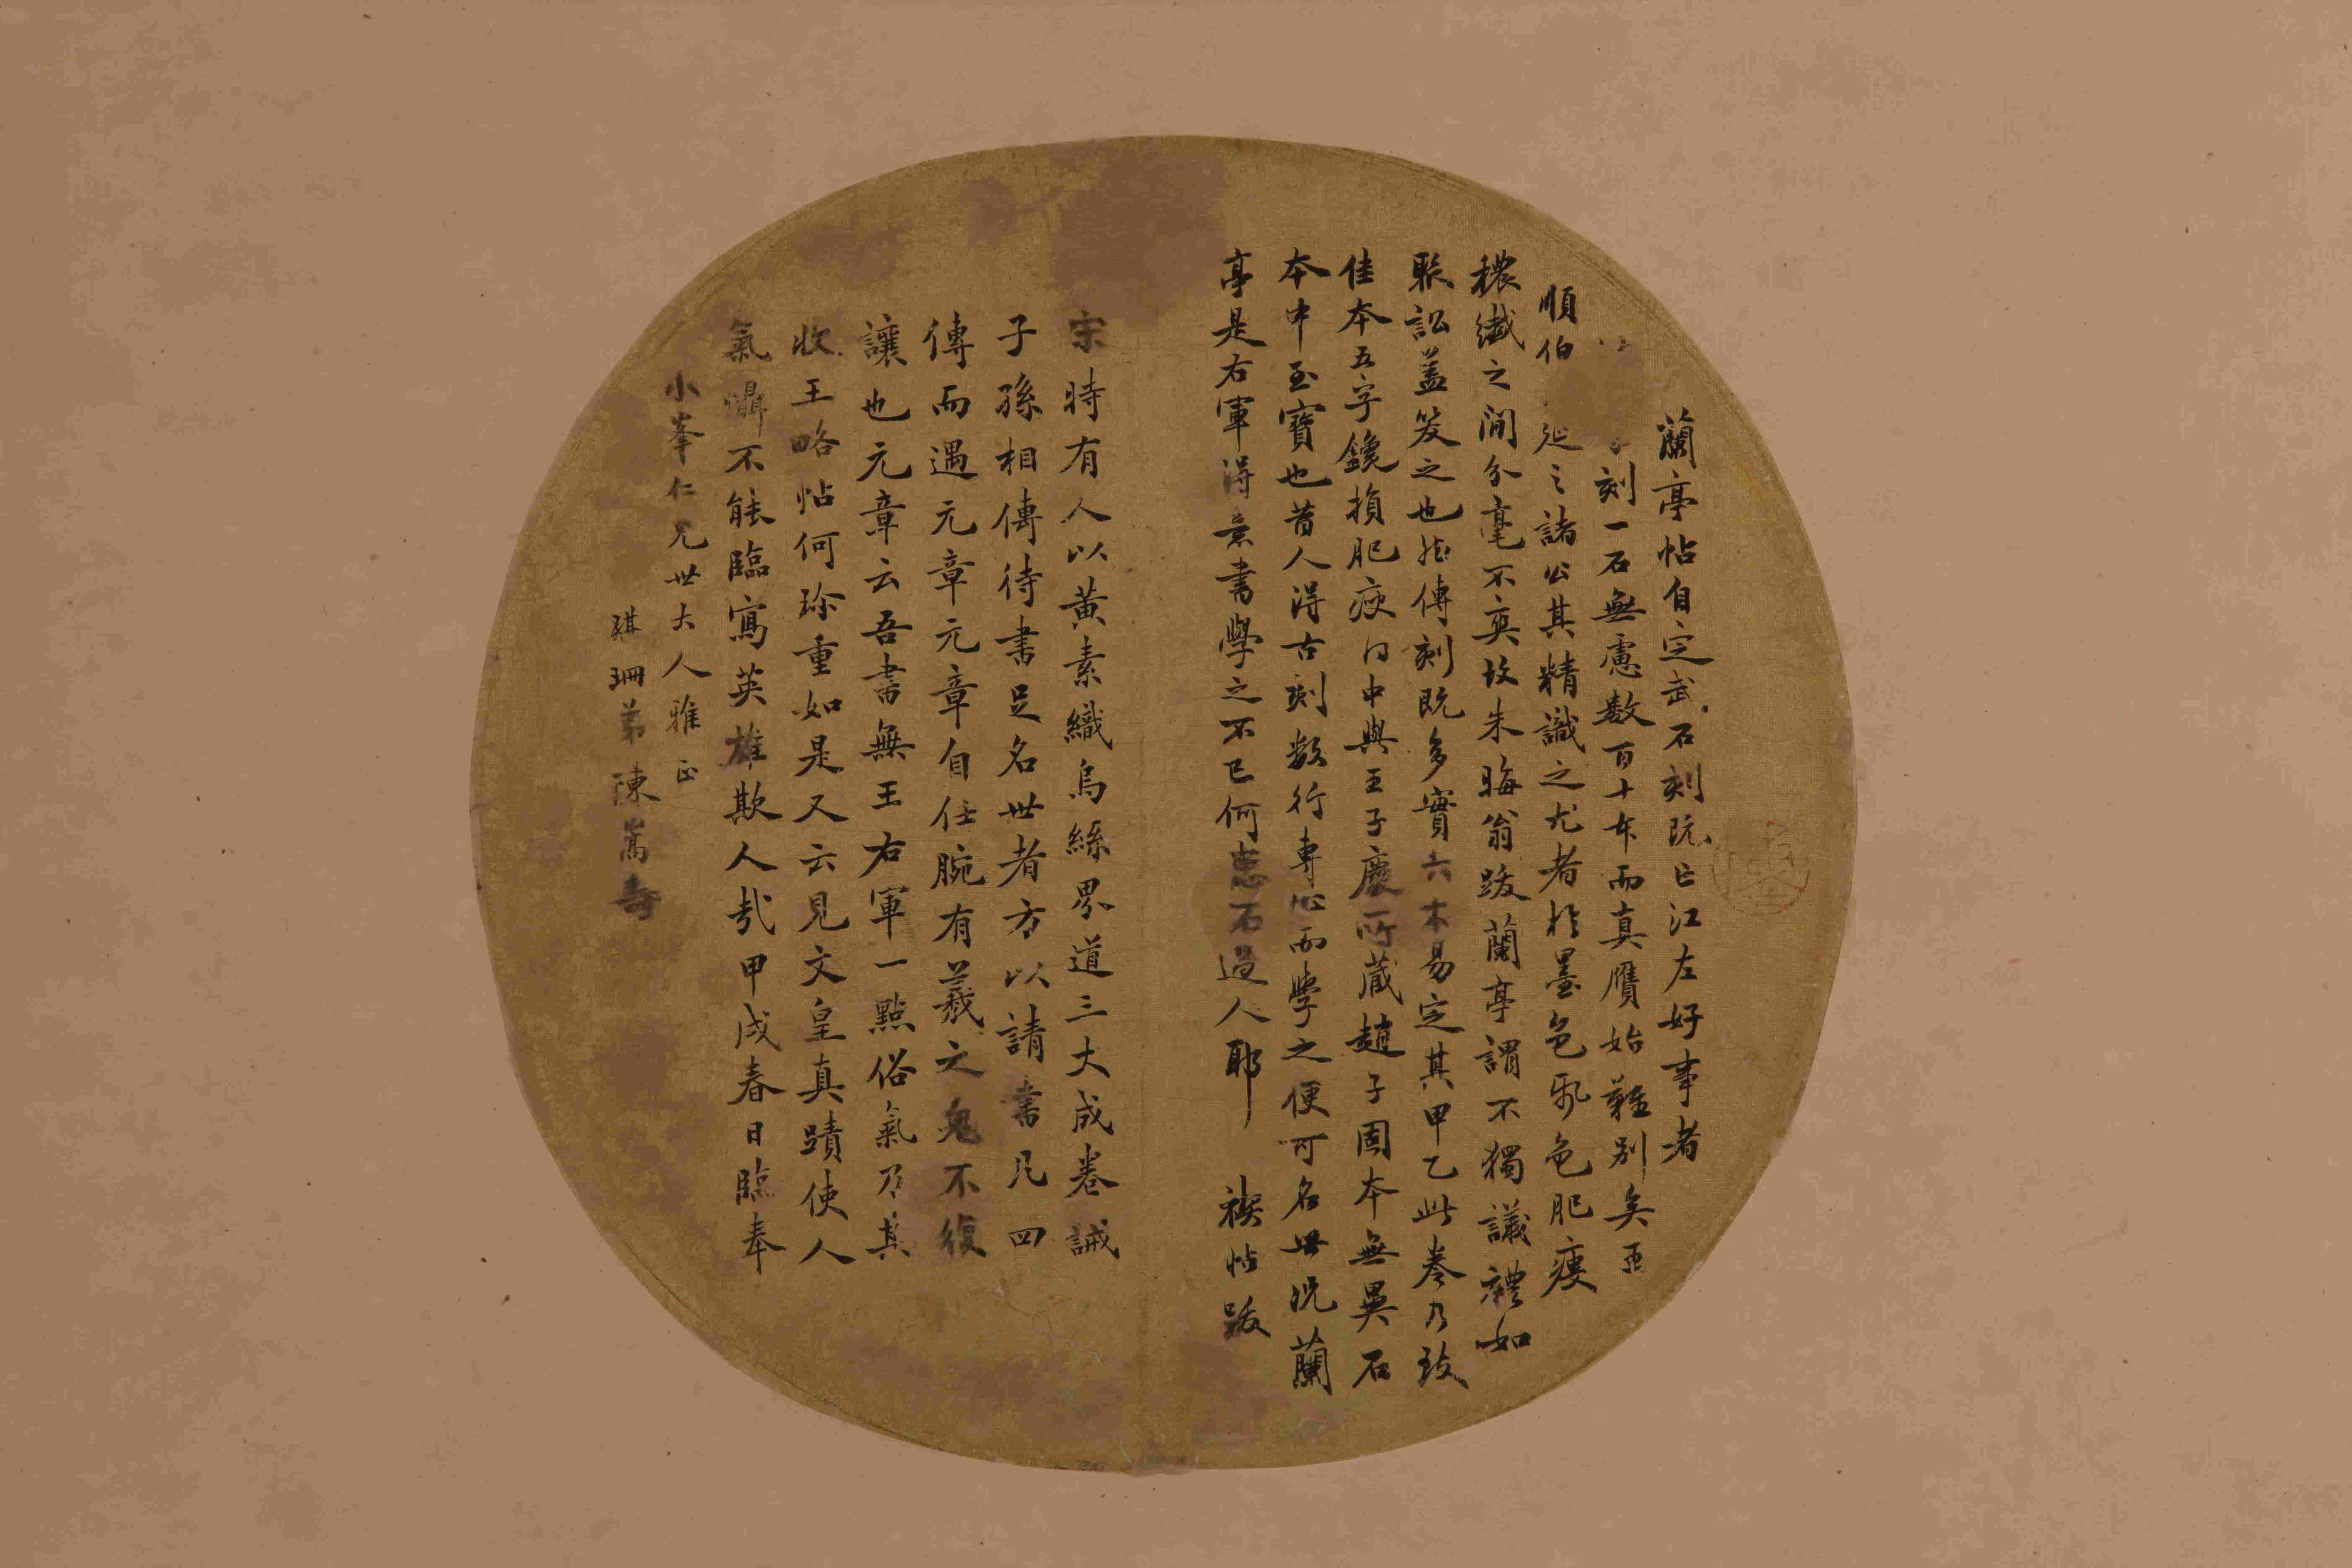 蘭亭帖自定武石刻既亡江左好事者
刻一石無慮數百十本而真贋始難別矣王
順伯 延之諸公其精識之尤者於墨色紙色肥瘦
穠纖之間分毫不爽故朱晦翁跋蘭亭謂不獨議禮如
聚訟蓋笑之也然傳刻既多實亦未易定其甲乙此卷乃致
佳本五字鑱損肥瘦得中與王子慶所藏趙子固本無異石
本中至寶也昔人得古刻數行專心而學之便可名世況蘭
亭是右軍得意書學之不已何患不過人耶 禊帖跋
宋時有人以黃素織烏絲界道三大成卷誡
子孫相傳待書足名世者方以請書凡四
傳而遇元章元章自任腕有羲之鬼不復
讓也元章云吾書無王右軍一點俗氣乃其
收王略帖何珍重如是又云見文皇真蹟使人
氣懾不能臨寫英雄欺人哉甲戌春日臨奉
小峯仁兄世大人雅正
琪珊弟陳嵩壽